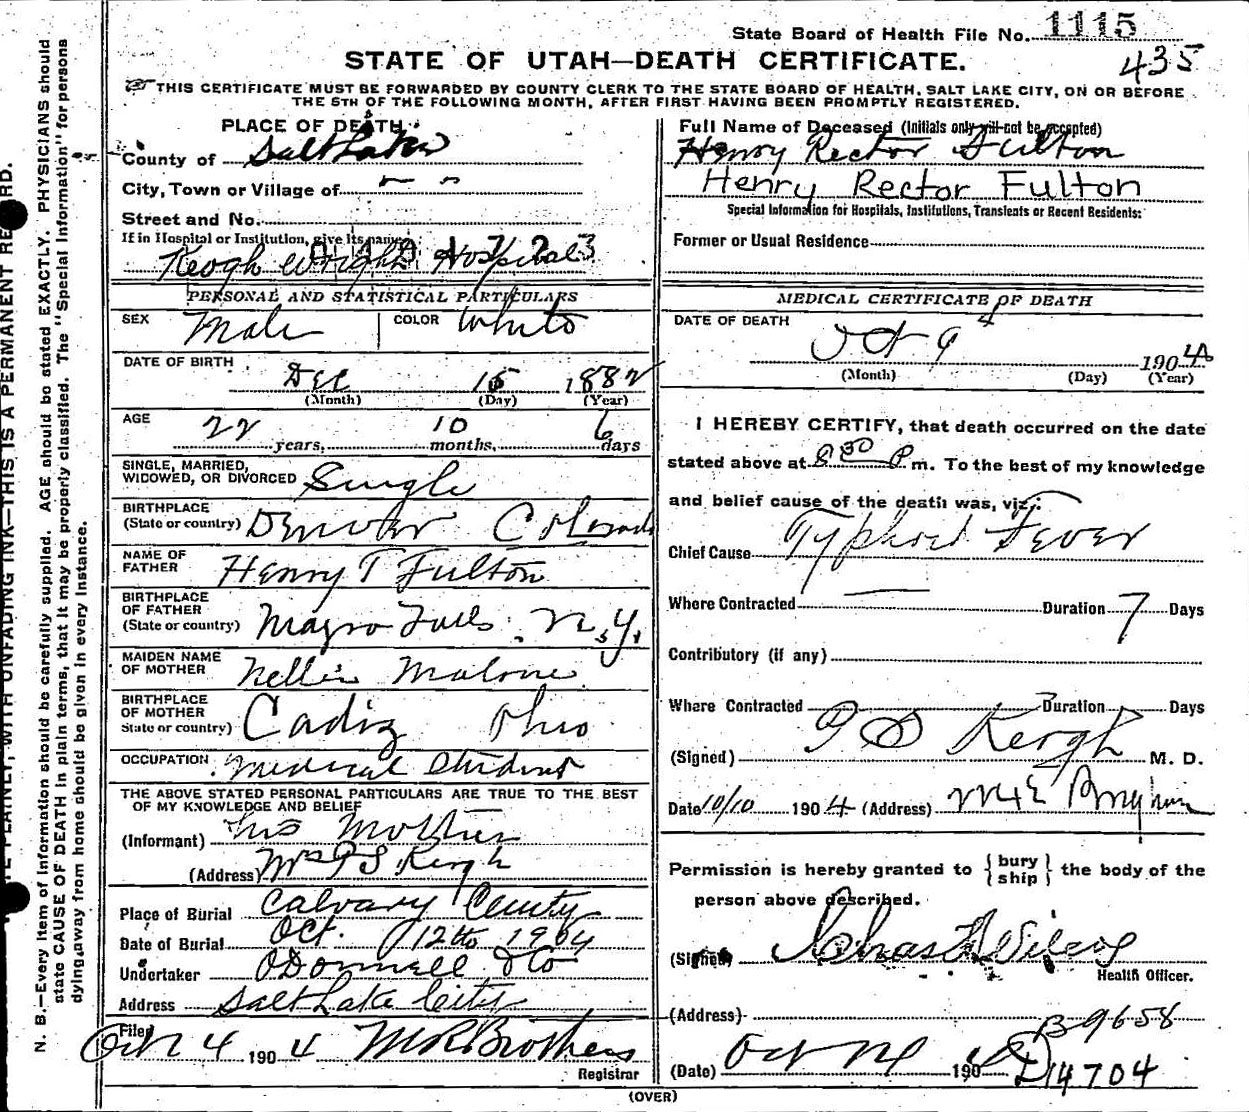 State Board of Health File No. 1115
435
STATE OF UTAH—DEATH CERTIFICATE.
THIS CERTIFICATE MUST BE FORWARDED BY COUNTY CLERK TO THE STATE BOARD OF HEALTH, SALT LAKE CITY, ON OR BEFORE
THE 5TH OF THE FOLLOWING MONTH, AFTER FIRST HAVING BEEN PROMPTLY REGISTERED.
PLACE OF DEATH
County of Salt Lake
City, Town or Village of
Street and No.
If in Hospital or Institution, give its name
Keogh Wright Hospital
PERSONAL AND STATISTICAL PARTICULARS
SEX Male COLOR White
DATE OF BIRTH
Dec 15 1882
(Month) (Day) (Year)
AGE
22 years, 10 months, 6 days
SINGLE, MARRIED,
WIDOWED, OR DIVORCED Single
BIRTHPLACE
(State or country) Denver Colorado
NAME OF
FATHER Henry T Fulton
BIRTHPLACE
OF FATHER
(State or country) Falls N.Y.
MAIDEN NAME
OF MOTHER Nellie Malone
BIRTHPLACE
OF MOTHER
State or country) Cadiz Ohio
OCCUPATION Medical Student
THE ABOVE STATED PERSONAL PARTICULARS ARE TRUE TO THE BEST
OF MY KNOWLEDGE AND BELIEF
(Informant) his Mother
(Address) Mrs
Place of Burial Calvary
Date of Burial Oct. 12th 1904
Undertaker ODonnell & Co
Address Salt Lake City
Filed
4 1904 M R Brothers
Registrar
Full Name of Deceased (Initials only will not be accepted)
Henry Rector Fulton
Henry Rector Fulton
Special Information for Hospitals, Institutions, Transients or Recent Residents:
Former or Usual Residence
MEDICAL CERTIFICATE OF DEATH
DATE OF DEATH
Oct 9 1904
(Month) (Day) (Year)
I HEREBY CERTIFY, that death occurred on the date
stated above at 8 30 P. m. To the best of my knowledge
and belief cause of the death was, viz.:
Chief Cause Typhoid Fever
Where Contracted Duration 7 Days
Contributory (if any)
Where Contracted Duration Days
(Signed) M. D.
Date 10/10 1904 (Address)
Permission is hereby granted to { bury
ship } the body of the
person above described.
(Signed) Chas
Health Officer.
(Address) B9658
(Date) Oct 190 D14704
(OVER)
N. B.—Every item of information should be carefully supplied. AGE should be stated EXACTLY. PHYSICIANS should
state CAUSE OF DEATH in plain terms, that it may be properly classified. The "Special Information" for persons
dying away from home should be given in every instance.
PLAINLY, WITH UNFADING INK—THIS IS A PERMANENT